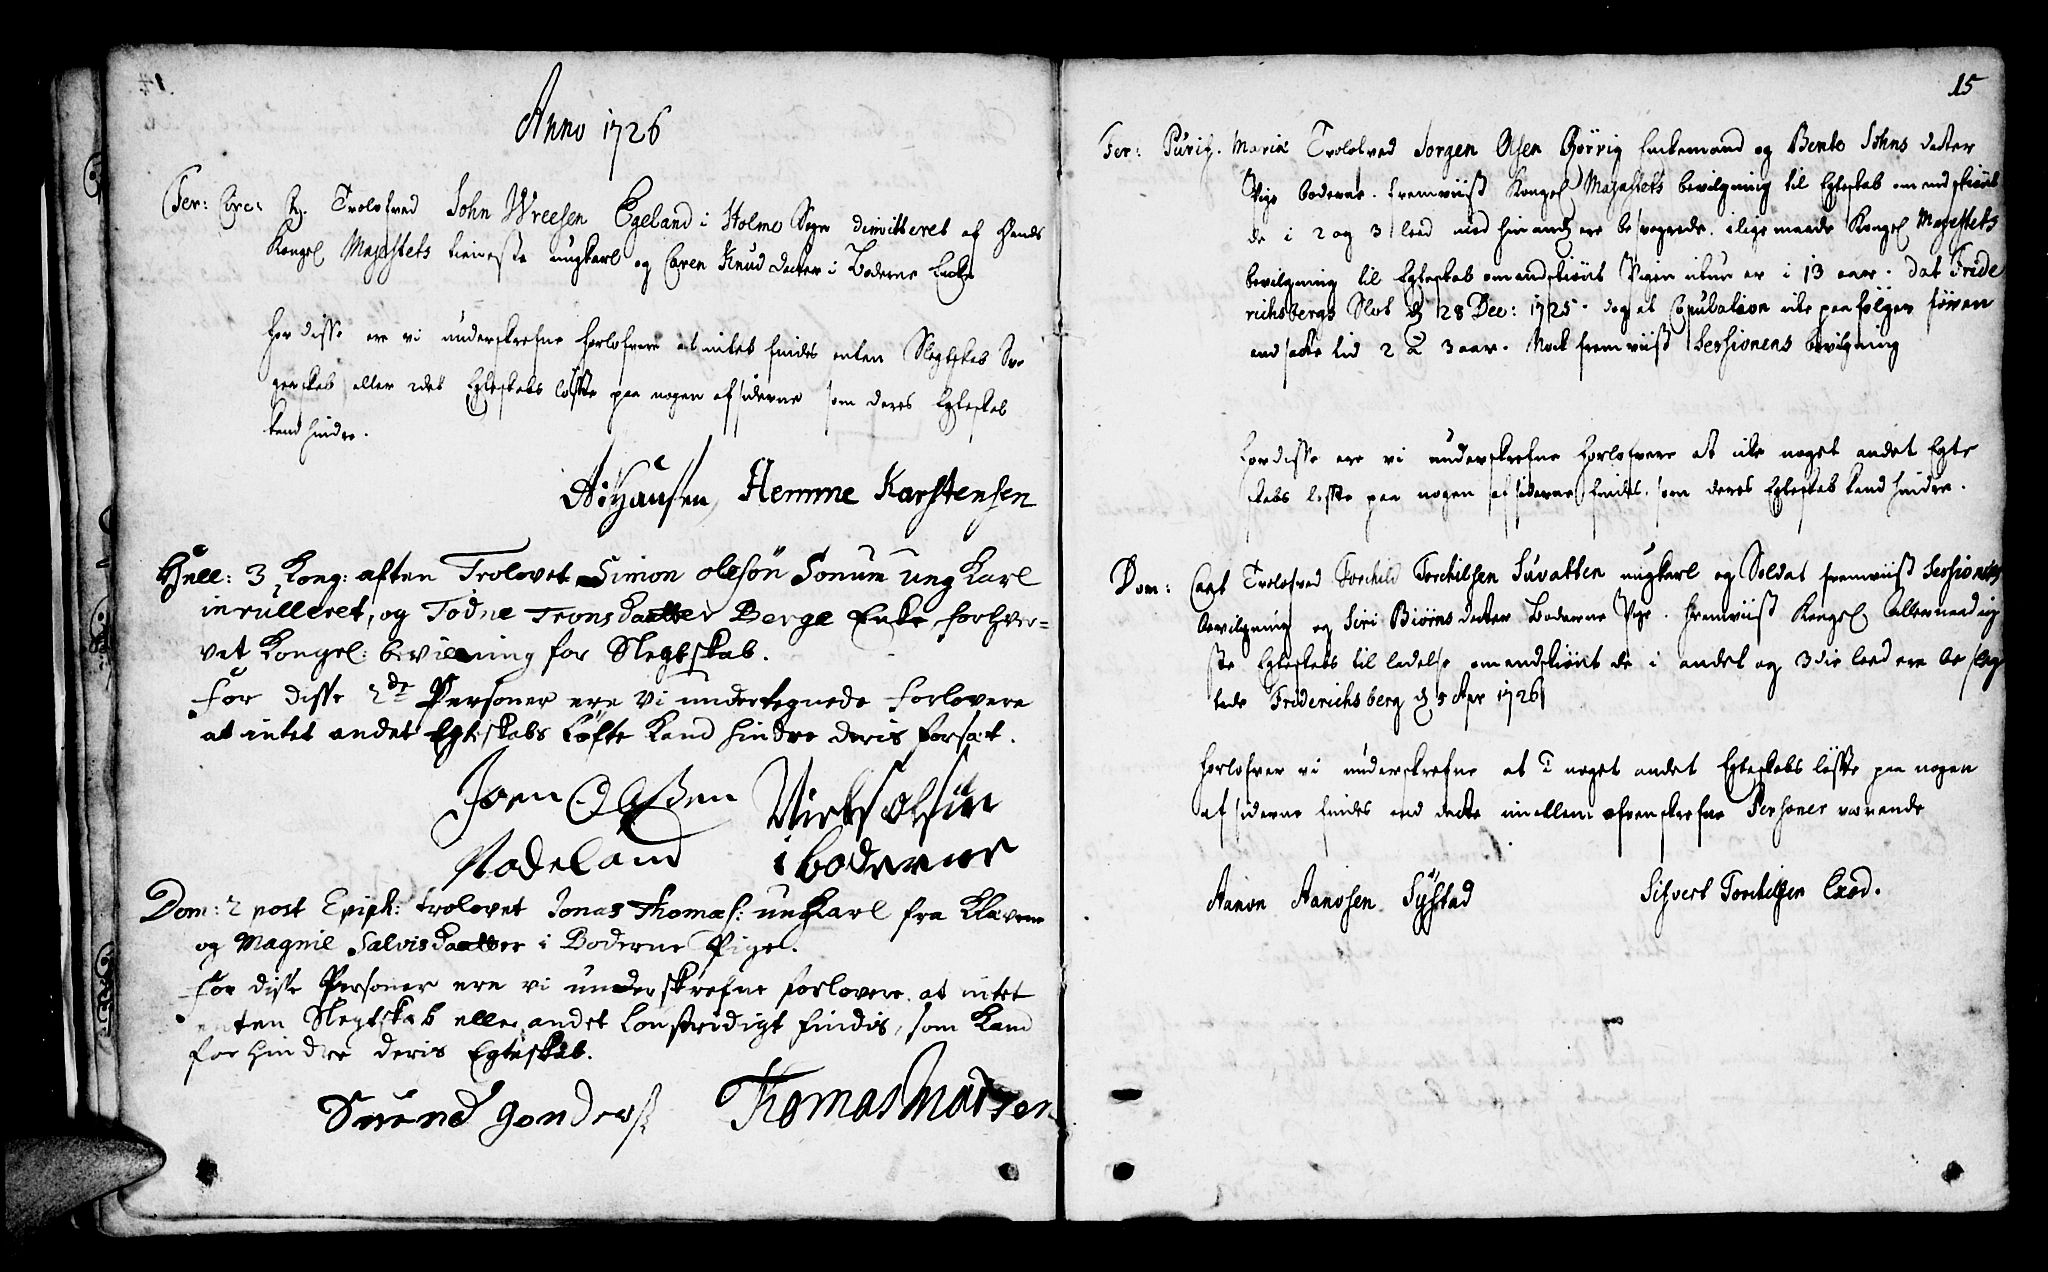 Anno 1726
Fer: Circ: Trolofved John Wreesen Egeland i Holme Sogn dimitteret af Hands
Kongel Majestets tieneste ungkarl og Caren Knud datter i Boderne Encke
For disse ere vi underskrefne forlofvere at intet findes enten Slegtskab Svo
gerskab eller andet Egteskabs løfte paa nogen af siderne som deres Egteskab
kand hindre.
Hemme Karstensen
Hell: 3 Kong: aften Trolovet Simon olesøn Sonum ung Karl
inrulleret, og Todne Tronsdaatter Berge Enke forhver=
vet Kongel: bevilning for Slegtskab.
For disse 2de Personer ere vi undertegnede forlovere
at intet andet Egteskabs Løfte Kand hindre deris forsæt.
Joen Olssen Niels olsøn
Rodeland i boderne
Dom: 2 post Epiph: trolovet Jonas Thomas: ungKarl fra Klevene
og Magnil Salvisdaatter i Boderne Pige.
For disse Personer ere vi underskrefne forlovere at intet
enten Slegtskab eller andet Lonstridigt findis, som Kand
forhindre deris Egteskab.
Svend Gonders: Thomas Madsen
15
Fer: Purif. Mariæ Trolofved Jorgen Olsen Enkemand og Bente Johns datter
Pige boderne. fremviist Kongel Majestets bevilgning til Egteskab om endskiønt
de i 2 og 3 leed med hinand ere besvogrede. ilige maade Kongel Majestets
bevilgning til Egteskab om endskiønt Pigen ikun er i 13 aar. Dat Fride
richsberg Slot d 28 Dec: 1725. dog at Copulation icke paafølgerføren
end sackte tid 2 a 3 aar. Nock fremviist Sessionens bevilgning
For disse ere vi underskrefne forlofvere at icke noget andet Egte
skabs løfte paa nogen af siderne findes, som deres Egteskab kand hindre.
Dom: Cant Trolofved Torchild Torchilsen Suvatten ungkarl og Soldat fremviist Sessionens
bevilgning og Siri Biørns datter Boderne Pige. fremviist Kongel allernaadig
ste Egteskabs tilladelse om endskiønt de i andet og 3die leed ere besleg
tede Friderichsberg d 5 Apr 1726
Forlofver vi underskrefne at I noget andet Egteskabs løfte paa nogen
af siderne findes end dette imellem ofvenskrefne Personer værende
Aanon Aanonsen Systad Sifvert Torchilsen